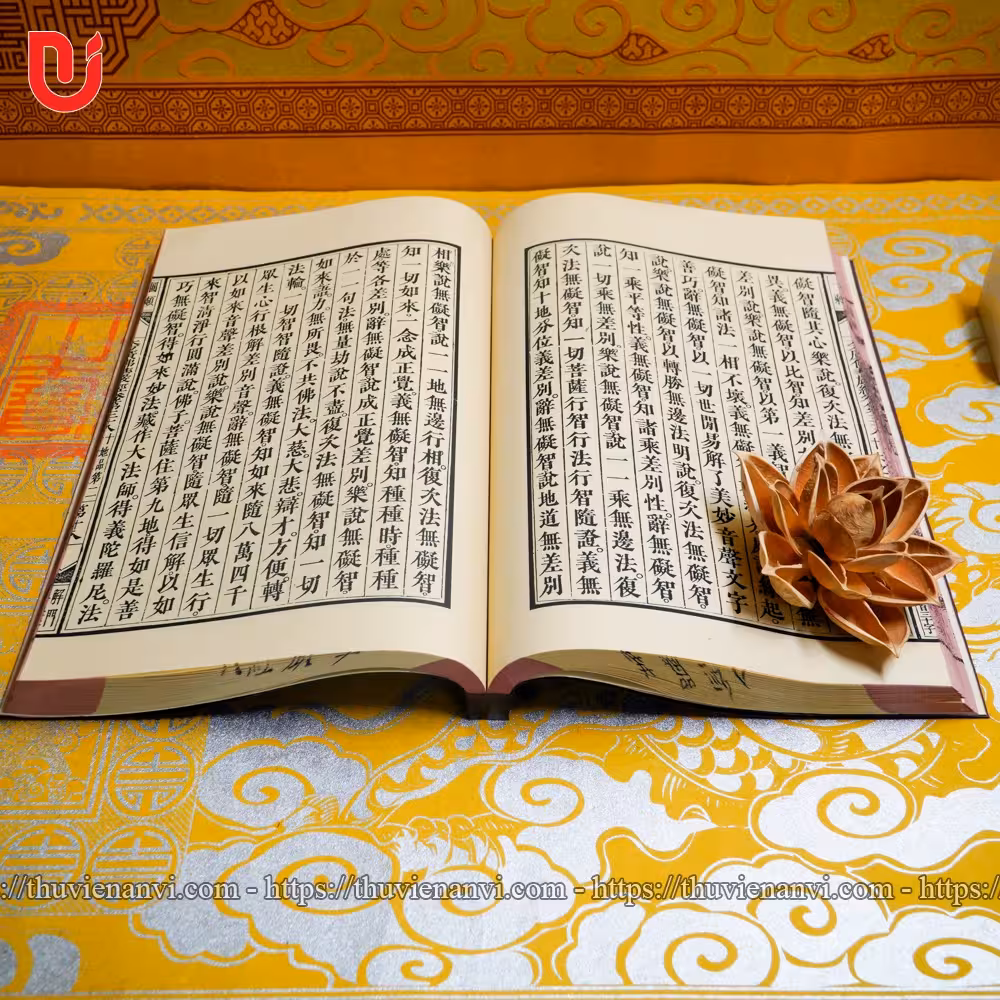 礙智隨其心樂說。復次法無
異。義無礙智以比智知差別
差別說。樂說無礙智以第一義智
礙智知諸法一相不壞。義無礙
善巧。辭無礙智以一切世間易解了美妙音聲文字
說。樂說無礙智以轉勝無邊法明說。復次法無礙智
知一乘平等性。義無礙智知諸乘差別性。辭無礙智
說一切乘無差別。樂說無礙智說一一乘無邊法。復
次法無礙智知一切菩薩行智行法行智隨證。義無
礙智知十地分位義差別。辭無礙智說地道無差別
相。樂說無礙智說一一地無邊行相。復次法無礙智。
知一切如來一念成正覺。義無礙智。知種種時種種
處等各差別。辭無礙智說成正覺差別。樂說無礙智。
於一一句法無量劫說不盡。復次法無礙智知一切
如來語。力。無所畏。不共佛法。大慈。大悲。辯才。方便。轉
法輪。一切智智隨證。義無礙智知如來隨八萬四千
眾生心行根解差別音聲。辭無礙智隨一切眾生行。
以如來音聲差別說。樂說無礙智隨眾生信解。以如
來智清淨行圓滿說。佛子。菩薩住第九地。得如是善
巧無礙智。得如來妙法藏。作大法師。得義陀羅尼。法
://thuvienanvi.com - https://thuvienanvi.com - https://thuvienanvi.com - https:/